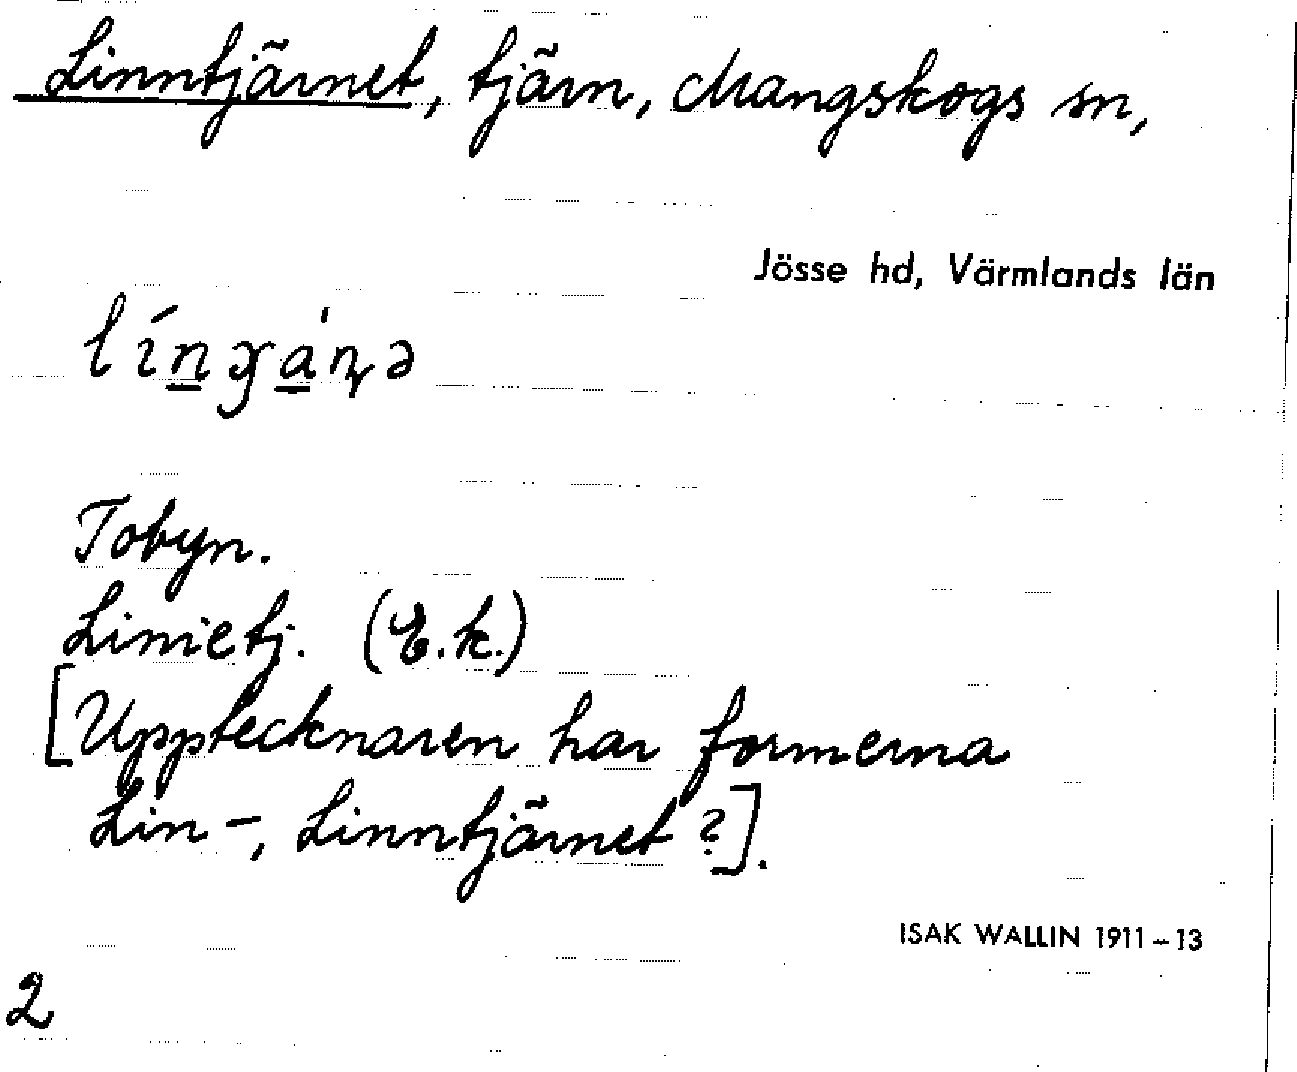 Linntjärnet, tjärn, Mangskogs sn,
Jösse hd, Värmlands län
Tobyn.
Linietj. (E.k.)
[Upptecknaren har formerna
Lin-, Linntjärnet?].
ISAK WALLIN 1911-13
2